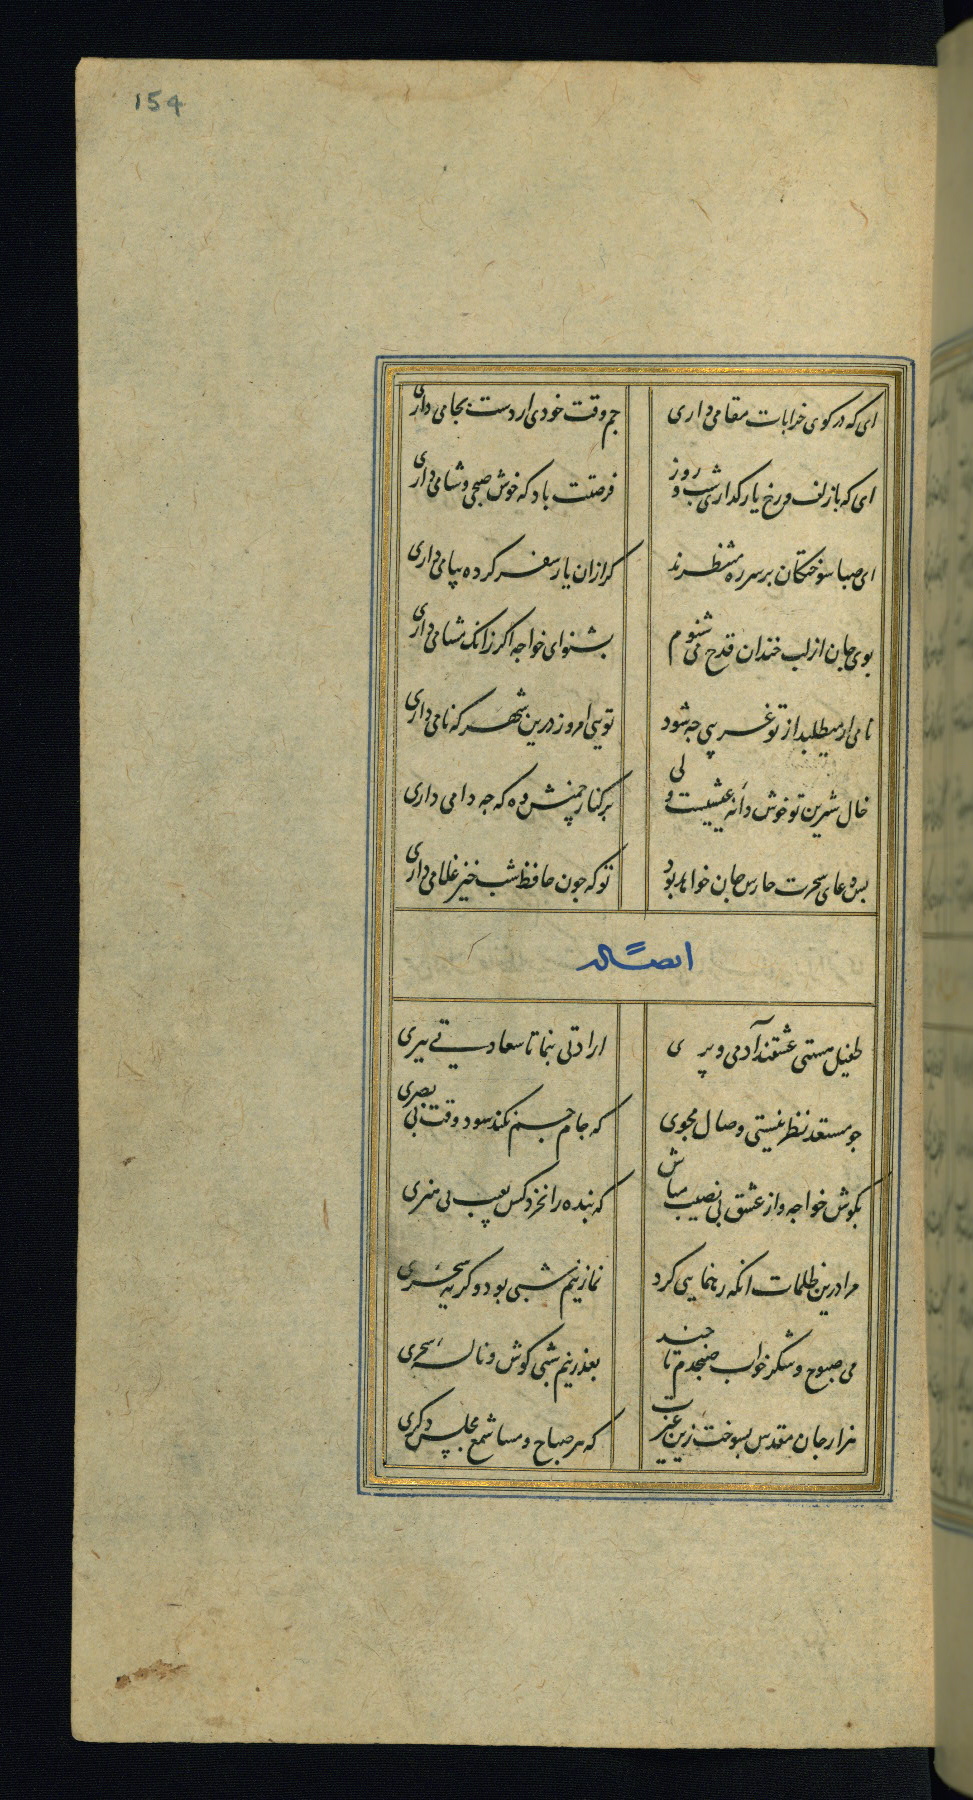 154
ای که در کوی خرابات مقامی داری
جم وقت خودی ار دست بجامی داری
ای که بازلف و رخ یار کذاری شب و روز
فرصتت باد که خوش صبحی و شامی داری
ای صبا سوختکان بر سر ره منتظرند
کر ازان یار سفر کرده پیامی داری
بوی جان از لب خندان قدح می شنوم
بشنو ای خواجه اکر زانک مشامی داری
نامی ار میطلبد از تو غریبی چه شود
تویی امروز درین شهر که نامی داری
خال شیرین تو خوش دانه عیشیست ولی
بر کنار چمنش وه که چه دامی داری
بس دعای سحرت حارس جان خواهد بود
تو که چون حافظ شب خیز غلامی داری
ایضاً له
طفیل هستی عشقند آدمی و پری
ارادتی بنما تا سعادتی ببری
چو مستعد نظر نیستی وصال مجوی
که جام جم نکند سود وقت بی بصری
بکوش خواجه و از عشق بی نصیب مباش
که بنده را نخرد کس بعیب بی هنری
مرا درین ظلمات انکه رهنمایی کرد
نماز نیم شبی بود و کریه سحری
می صبوح و شکر خواب صبحدم تا چند
بعذر نیم شبی کوش و ناله سحری
هزار جان مقدس بسوخت زین غیرت
که هر صباح و مسا شمع مجلس دکری